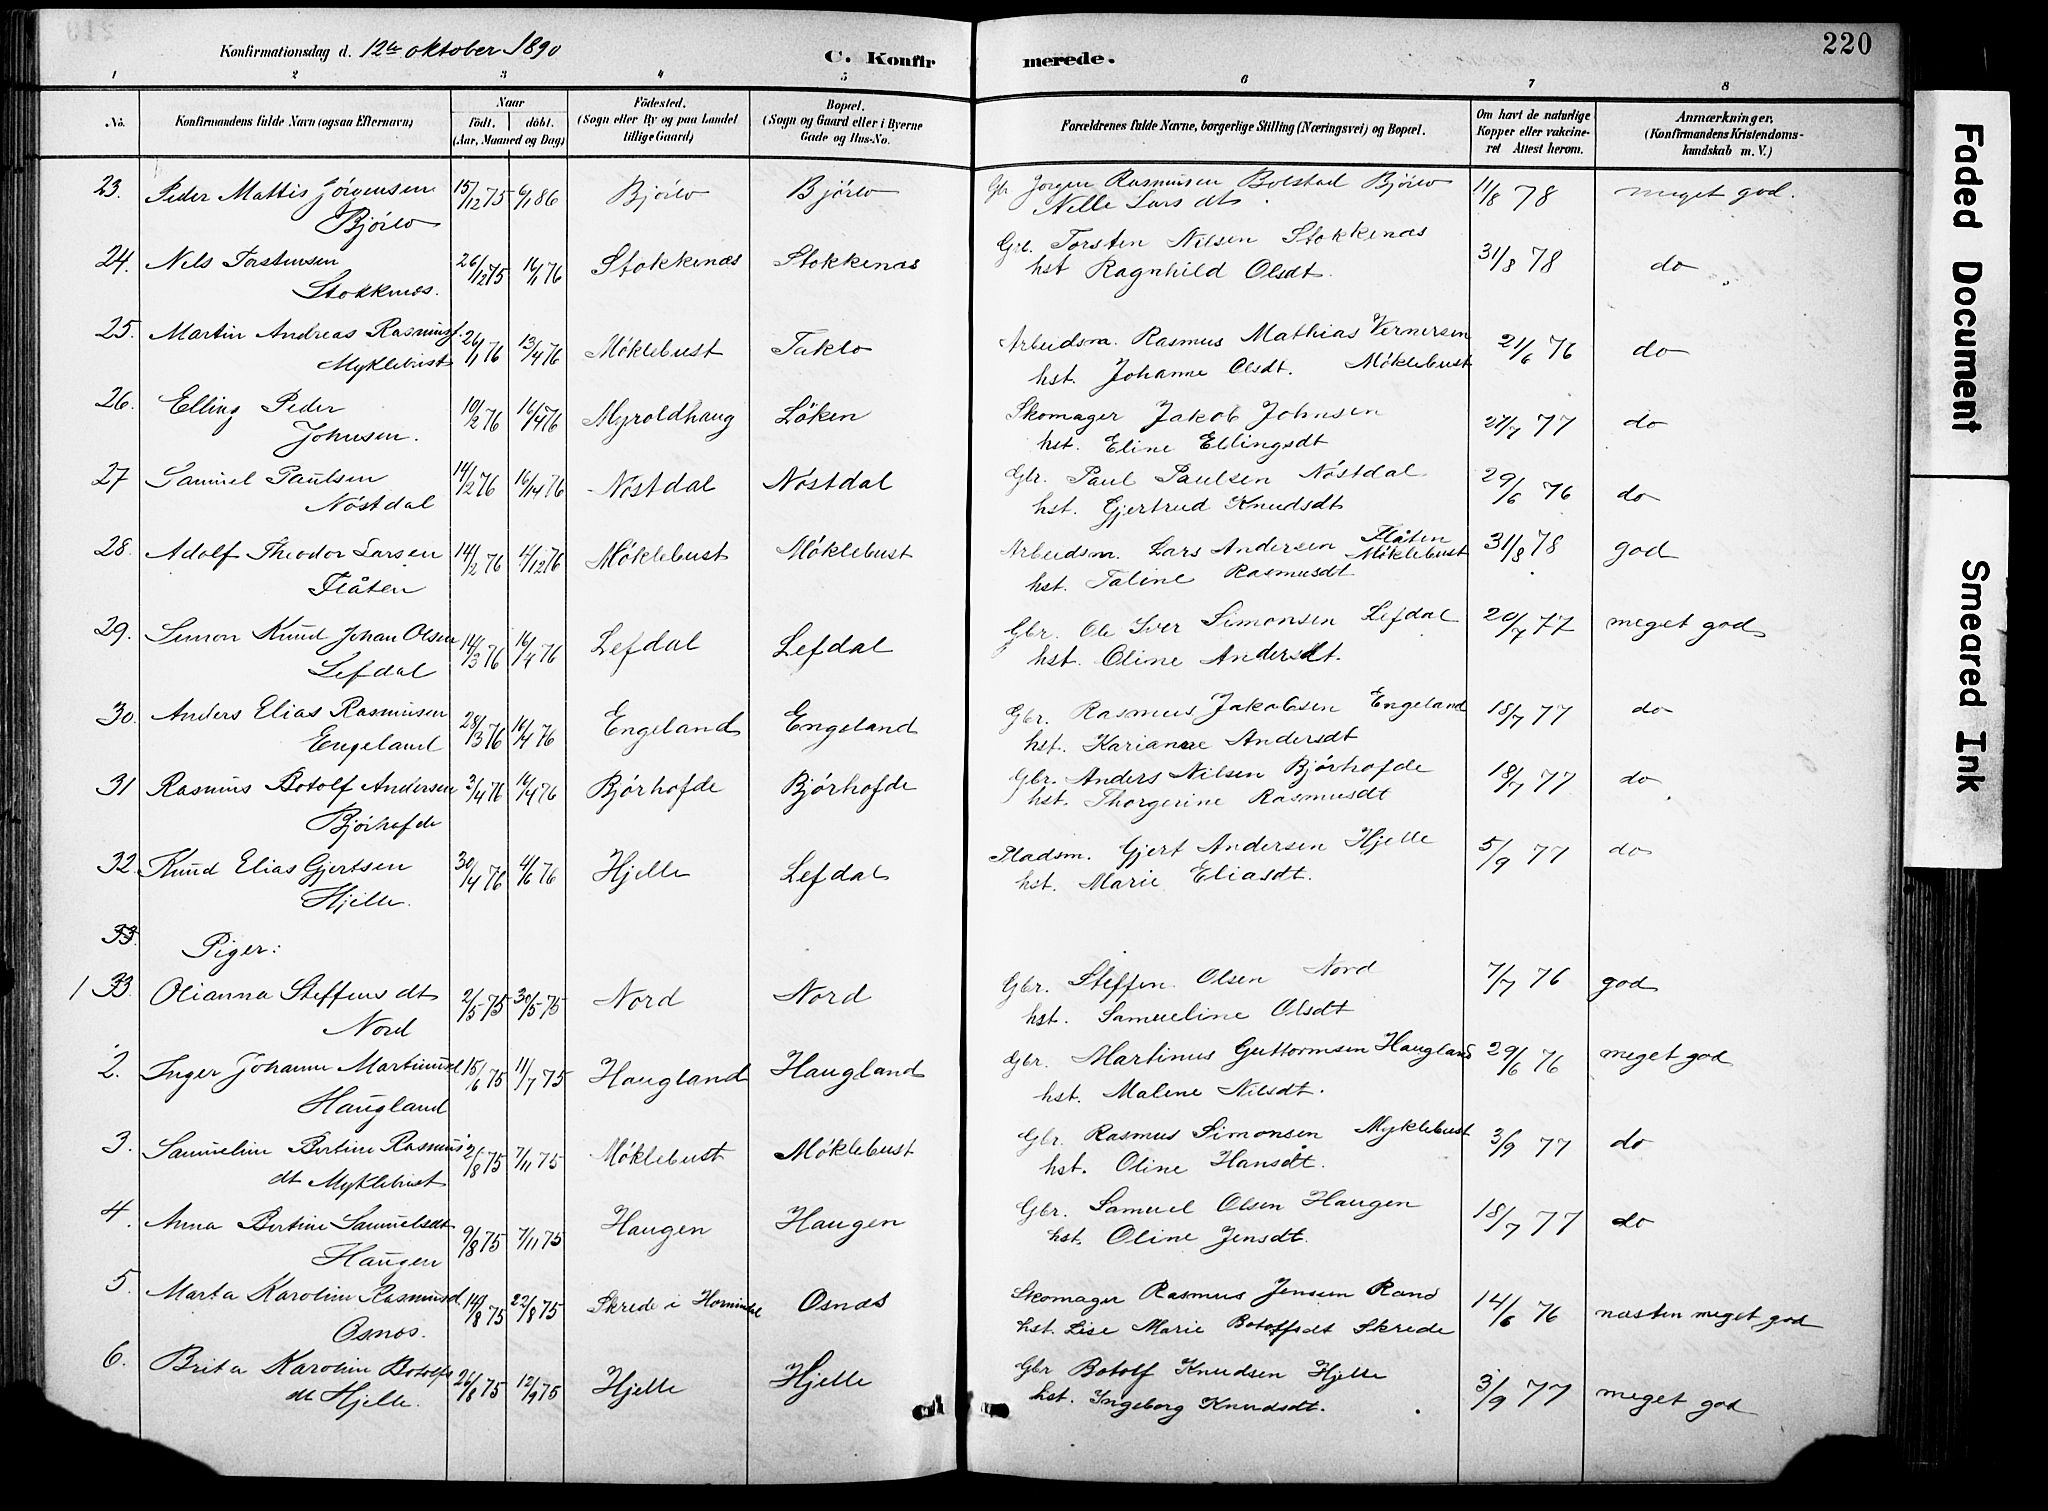 Konfirmationsdag d. 12te oktober 1890
C. Konfirmerede.
220
1 2 3 4 5 6 7 8
No.
Konfirmandens fulde Navn (ogsaa Efternavn)
Naar
født. døbt.
(Aar, Maaned og Dag)
Fødested.
(Sogn eller By og paa Landet
tillige Gaard)
Bopæl.
(Sogn og Gaard eller i Byerne
Gade og Hus-No.
Forældrenes fulde Navne, borgerlige Stilling (Næringsvei) og Bopæl.
Om havt de naturlige
Kopper eller vakcine-
ret Attest herom.
Anmærkninger,
(Konfirmandens Kristendoms-
kundskab m. V.)
23. Peder Mattis Jørgensen 15/12 75 6/1 86 Bjørlo Bjørlo Gbr. Jørgen Rasmusen Bolstad Bjørlo 11/8 78 meget god.
Bjørlo Nille Larsdt.
24. Nils Torstensen 26/12 75 16/1 76 Stokkenæs Stokkenæs Gbr. Torsten Nilsen Stokkenæs 31/8 78 do
Stokkenæs. hst Ragnhild Olsdt.
25. Martin Andreas Rasmusf. 26/1 76 13/4 76 Møklebust Taklo Arbeidsm. Rasmus Mathias Vernersen 21/6 76 do
Myklebust hst. Johanne Olsdt. Møklebust
26. Elling Peder 10/2 76 16/4 76 Myroldhaug Løken Skomager Jakob Johnsen 27/7 77 do
Johnsen. hst. Eline Ellingsdt
27 Samuel Paulsen 14/2 76 16/4 76 Nøstdal Nøstdal Gbr. Paul Paulsen Nøstdal 29/6 76 do
Nøstdal hst. Gjertrud Knudsdt
28. Adolf Theodor Larsen 14/2 76 14/12 76 Møklebust Møklebust Arbeidsm. Lars Andersen Flåten Møklebust 31/8 78 god
Flåten hst. Taline Rasmusdt
29. Simon Knud Johan Olsen 14/3 76 16/4 76 Lefdal Lefdal Gbr. Ole Iver Simonsen Lefdal 20/7 77 meget god
Lefdal hst. Oline Andersdt.
30. Anders Elias Rasmusen 28/3 76 16/4 76 Engeland Engeland Gbr. Rasmus Jakobsen Engeland 18/7 77 do
Engeland hst. Karianne Andersdt
31 Rasmus Botolf Andersen 3/4 76 16/4 76 Bjørhofde Bjørhofde Gbr. Anders Nilsen Bjørhofde 18/7 77 do
Bjørhofde hst. Thorgerine Rasmusdt
32. Knud Elias Gjertsen 30/4 76 4/6 76 Hjelle Lefdal Pladsm. Gjert Andersen Hjelle 5/9 77 do
Hjelle. hst. Marie Eliasdt.
33.
Piger:
1 33. Olianna Steffensdt 2/5 75 30/5 75 Nord Nord Gbr. Steffen Olsen Nord 7/7 76 god
Nord hst. Samueline Olsdt
2. Inger Johanne Martinusd 15/6 75 11/7 75 Haugland Haugland Gbr. Martinus Guttormsen Haugland 29/6 76 meget god
Haugland hst. Malene Nilsdt.
3. Samueline Bertine Rasmus 2/8 75 7/11 75 Møklebust Møklebust Gbr. Rasmus Simonsen Myklebust 3/9 77 do
dt Myklebust hst. Oline Hansdt.
4. Anna Bertine Samuelsdt 9/8 75 7/11 75 Haugen Haugen Gbr. Samuel Olsen Haugen 18/7 77 do
Haugen hst. Oline Jensdt.
5. Marta Karoline Rasmusd. 14/8 75 22/8 75 Skrede i Hornindal Osnæs Skomager Rasmus Jensen Rand 14/6 76 næsten meget god
Osnæs. hst. Lise Marie Botolfsdt Skrede
6. Brita Karoline Botolfs 26/8 75 12/9 75 Hjelle Hjelle Gbr Botolf Knudsen Hjelle 3/9 77 meget god
dt Hjelle. hst. Ingeborg Knudsdt.
Faded Document
Smeared Ink